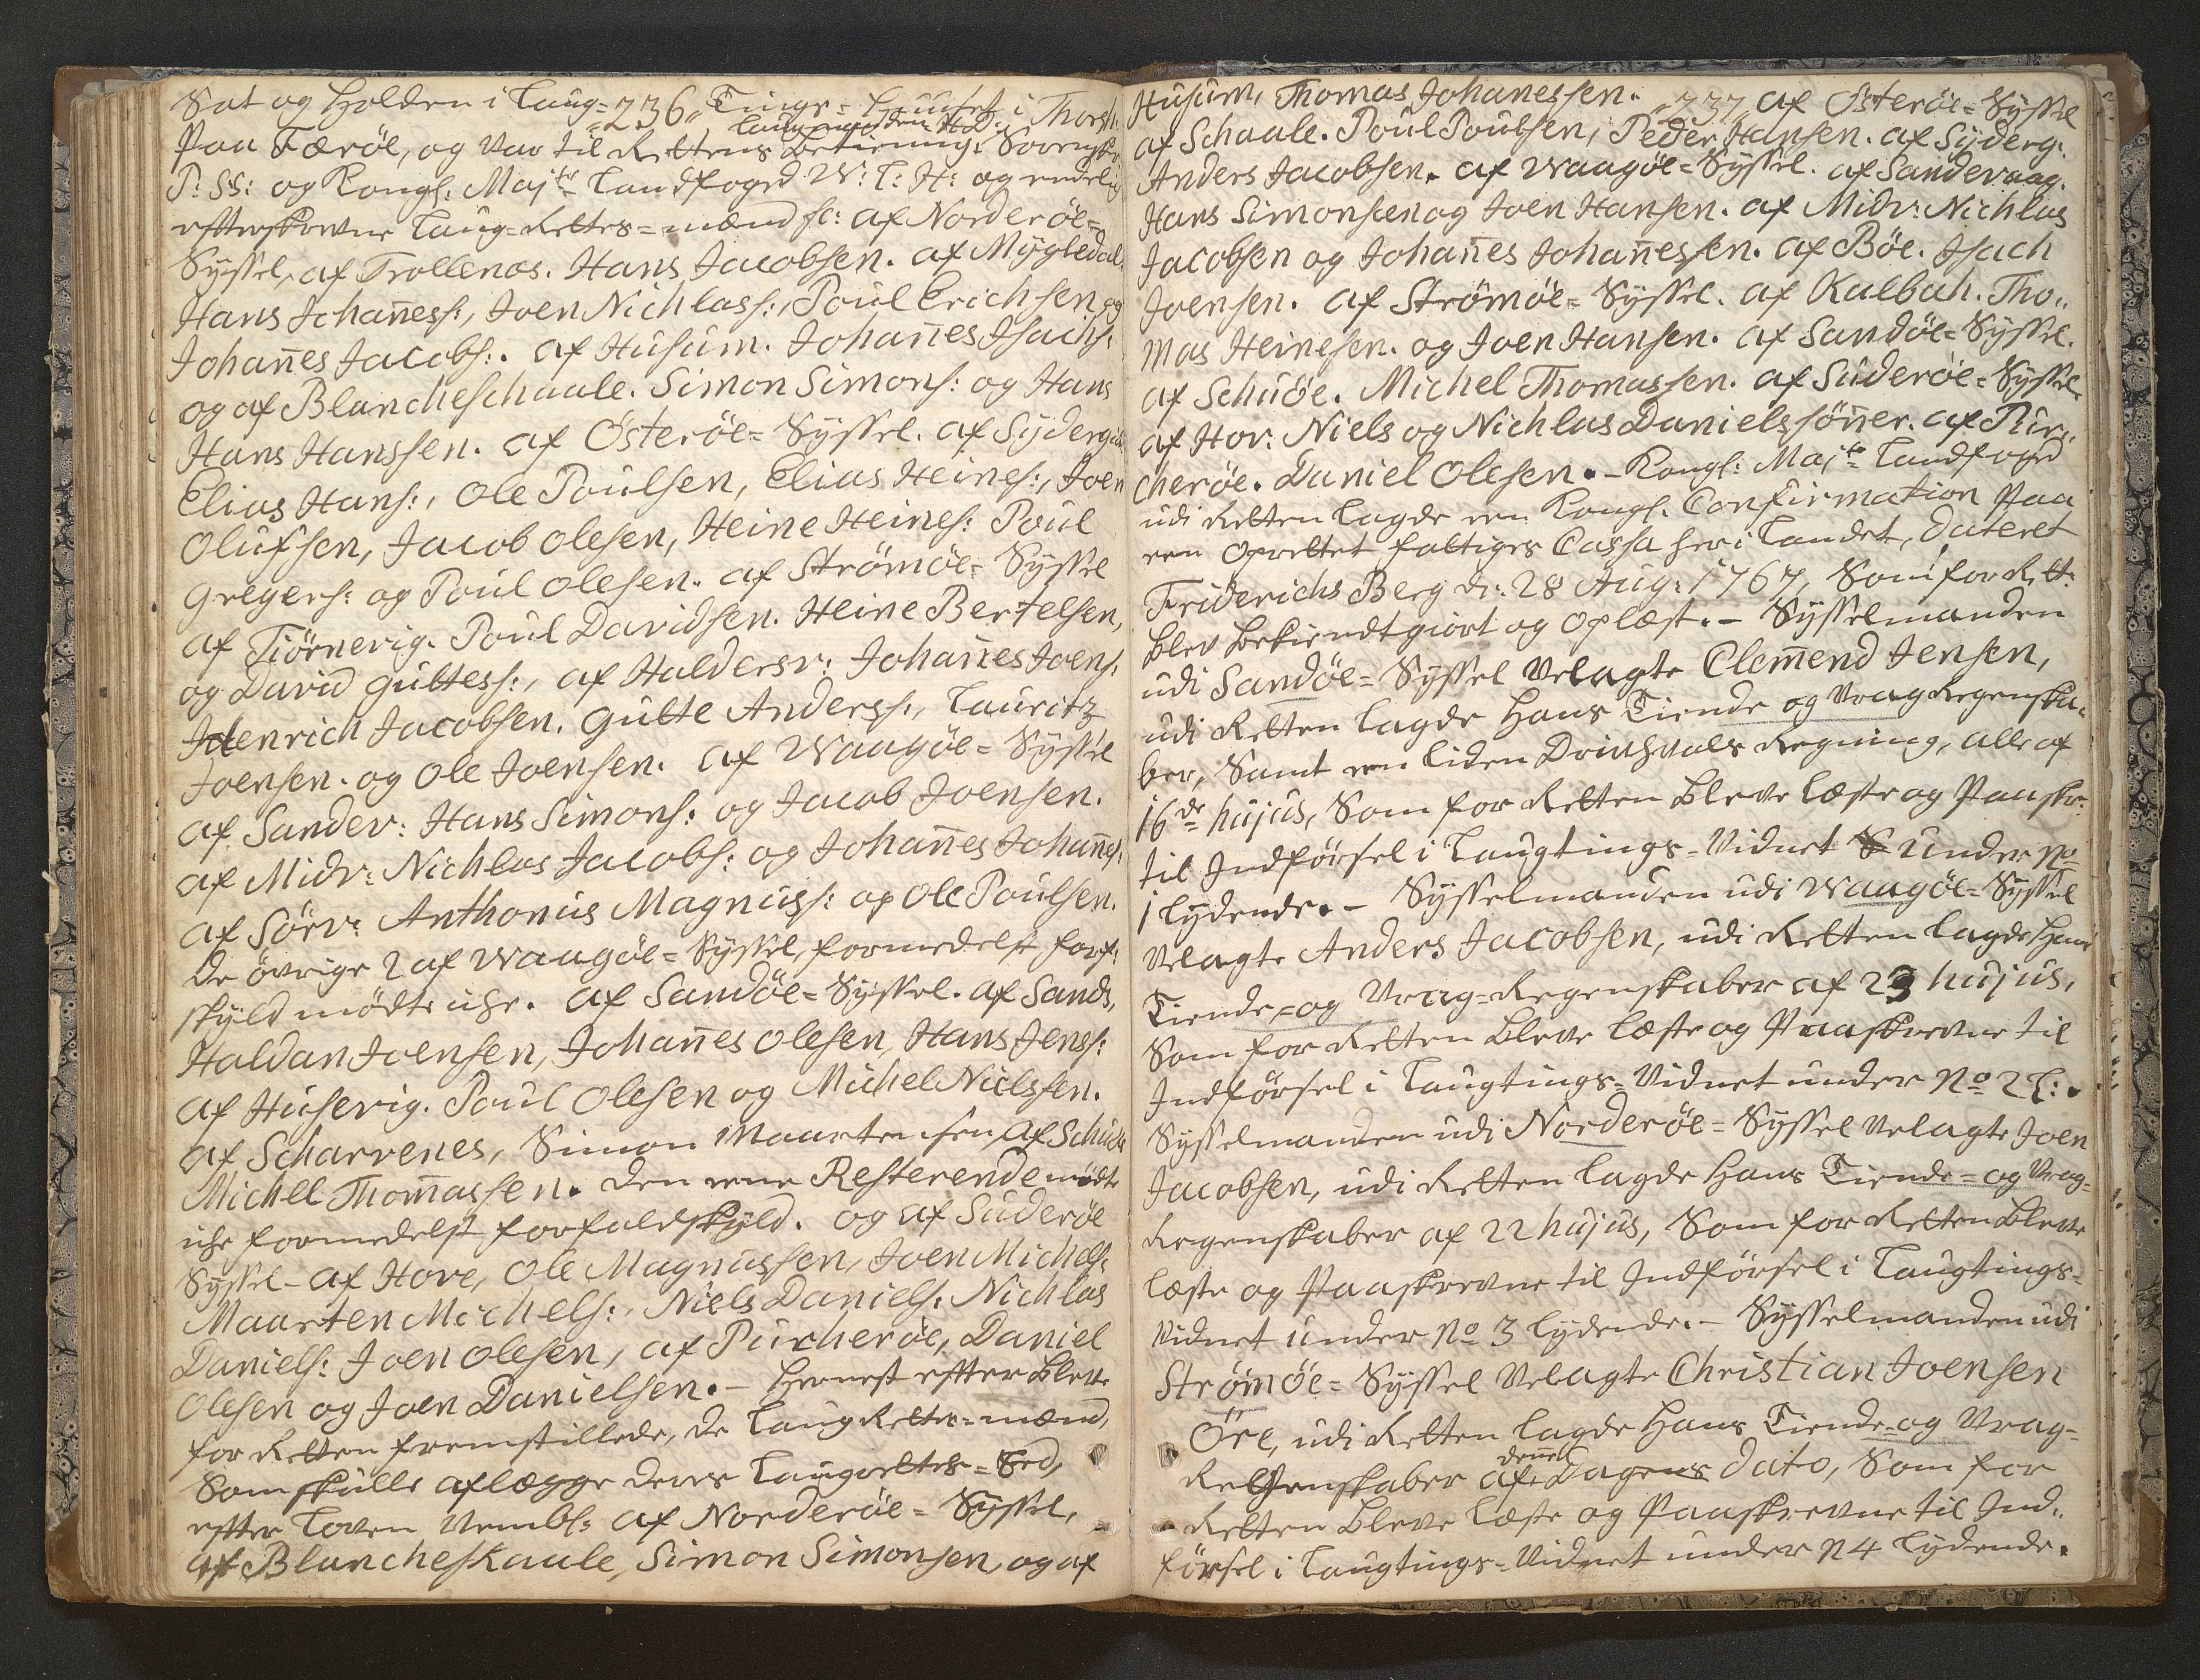 "236"
Sat og Holden i Laug=Tings=Huuset i Thorsh:
Laugmanden H.D:
Paa Færöe, og var til Rettens Betiening, Sorenskr:
P: SS: og Kongl: Majts Landfoged W: L: H: og endelig
efterskrevne Laug=Rettes=mænd sc: af Norderöe=
Syssel, af Trollenæs. Hans Jacobsen. af Mygledal.
Hans Johañess:, Joen Nichlass:, Poul Erichsen og
Johañes Jacobs:. af Husum. Johañes Isachs:
og af Blancheschaale. Simon Simons: og Hans
Hans Hanssen. af Österöe= Syssel. af Syderg:
Elias Hans:, Ole Poulsen, Elias Heines:, Joen
Olufsen, Jacob Olesen, Heine Heines: Poul
Gregers: og Poul Olesen. af Strömöe= Syssel
af Tiörnerig. Poul Davidsen. Heine Bertelsen,
og David Guttess:, af Haldersv: Johañes Joens:
Henrich Jacobsen. Gutte Anderss:, Lauritz
Joensen. og Ole Joensen. af Waagöe= Syssel
af Sander: Hans Simons: og Jacob Joensen.
af Midv: Nichlas Jacobs: og Johañes Johañes:
af Sörv: Anthonius Magnuss: og Ole Poulsen.
De övrige 2 af Waagöe= Syssel, formedelst forf:
skyld mödte icke. af Sandöe= Syssel. af Sands,
Haldan Joensen, Johañes Olesen, Hans Jenss:
af Huserig. Poul Olesen og Michel Nielssen.
af Scharvenes, Simon Maartensen, af Schuöe
Michel Thomassen. Den eene Resterende mödte
icke formedelst forfaldskyld. og af Suderöe
Syssel - af Hove, Ole Magnussen, Joen Michels:
Maarten Michels:, Niels Daniels: Nichlas
Daniels: Joen Olesen, af Purcheröe, Daniel
Olesen og Joen Danielsen. - Hernest efter bleve
for Retten fremstillede, de Laug Rettes=mænd,
Som skulle aflægge deres Laugrettes=Eed,
efter Loven Nembl: af Norderöe= Syssel,
af Blancheskaale, Simon Simonsen, og af
"237"
Husum, Thomas Johanessen. af Österöe= Syssel
af Schaale. Poul Poulsen, Peder Hansen. af Syderg:
Anders Jacobsen. af Waagöe= Syssel. af Sandevaag.
Hans Simonsen og Joen Hansen. af Midv: Nichlas
Jacobsen og Johañes Johañessen. af Böe. Isach
Joensen. af Strömöe= Syssel. af Kalbach. Tho„
mas Heinesen. og Joen Hansen. af Sandöe= Syssel.
af Schuöe. Michel Thomassen. af Suderöe= Syssel
af Hov: Niels og Nichlas Danielssöñer. af Pur„
cheröe. Daniel Olesen. - Kongl: Majts Landfoged
udi Retten lagde een Kongl: Confirmation Paa
een Oprettet fattiges Cassa her i Landet, Dateret
Friderichs Berg d: 28 Aug: 1767, Som for Rett:
blev bekiendtgiort og oplæst. - Sysselmanden
udi Sandöe= Syssel Velagte Clemend Jensen,
udi Retten lagde Hans Tiende og Vrag Regenska„
ber, Samt een liden Drivhvals Regning, alle af
16de hujus, Som for Retten bleve læste og Paaskr:
til Indförsel i Laugtings=Vidnet under No
1 lydende. - Sysselmanden udi Waagöe= Syssel
Velagte Anders Jacobsen, udi Retten lagde Hans
Tiende= og Vrag=Regenskaber af 23 hujus,
Som for Retten bleve læste og Paaskrevne til
Indförsel i Laugtings=Vidnet under No 2 L:.
Sysselmanden udi Norderöe= Syssel Velagte Joen
Jacobsen, udi Retten lagde Hans Tiende= og Vrag=
Regenskaber af 22 hujus, Som for Retten bleve
læste og Paaskrevne til Indförsel i Laugtings=
Vidnet under No 3 lydende. - Sysselmanden udi
Strömöe= Syssel Velagte Christian Joensen
Öre, udi Retten lagde Hans Tiende= og Vrag=
deñes
Regenskaber af Dagens Dato, Som for
Retten bleve læste og Paaskrevne til Ind„
försel i Laugtings=Vidnet under N 4 lydende.